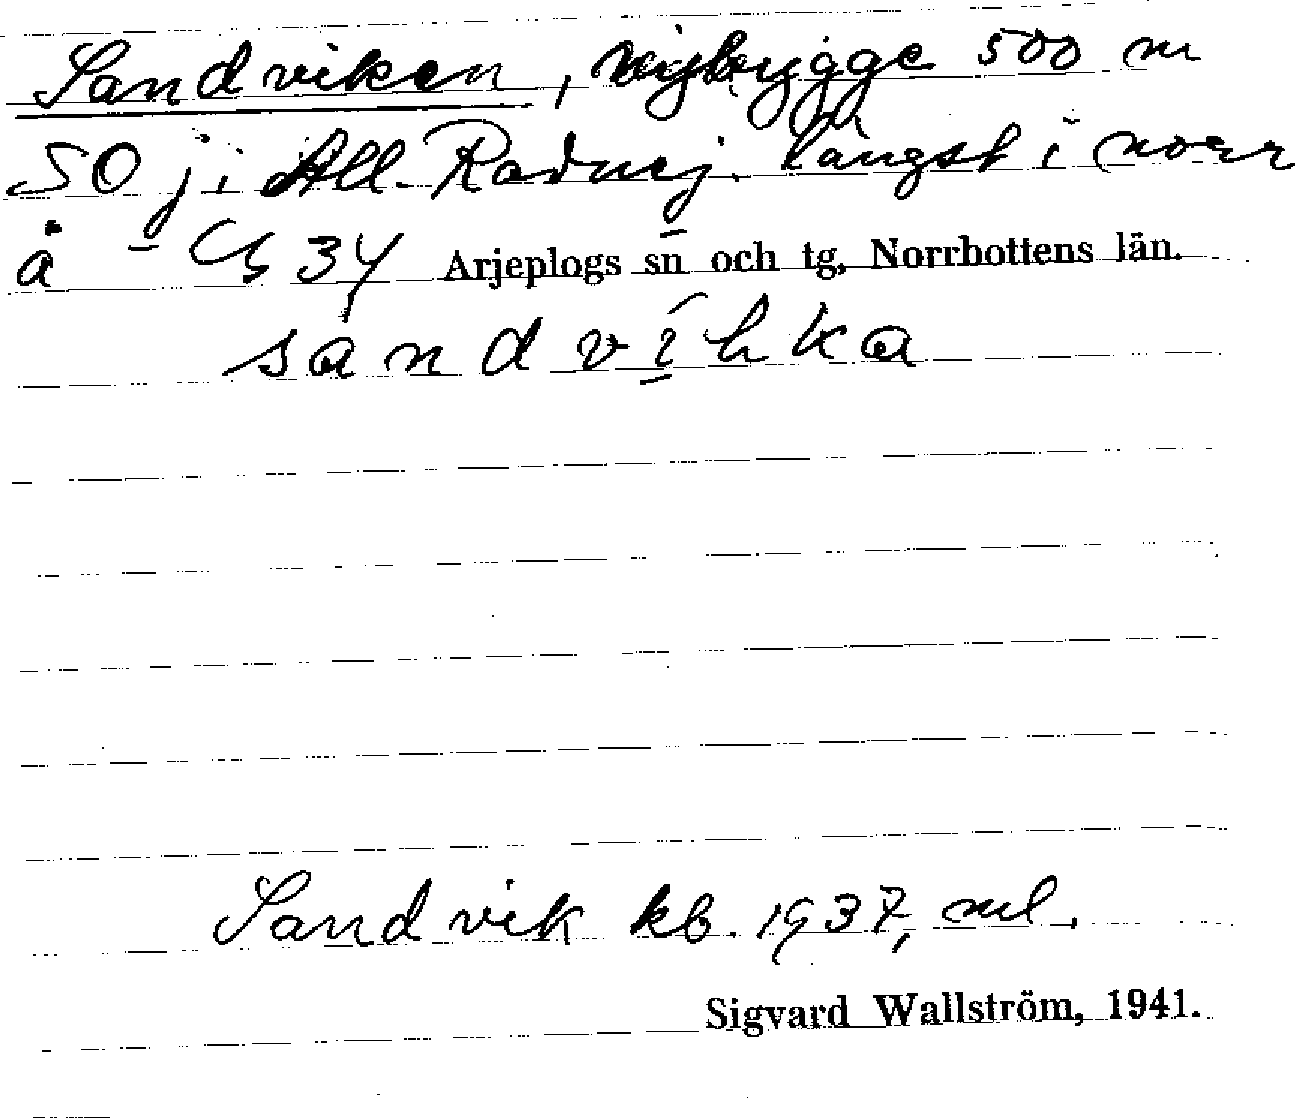 Sandviken, nybygge 500 m
SO j; All. Radnej. längst i norr
å - G 34 Arjeplogs sn och tg, Norrbottens län.
sandvi̱hka
Sandvik kb. 1937, ml.
Sigvard Wallström, 1941.